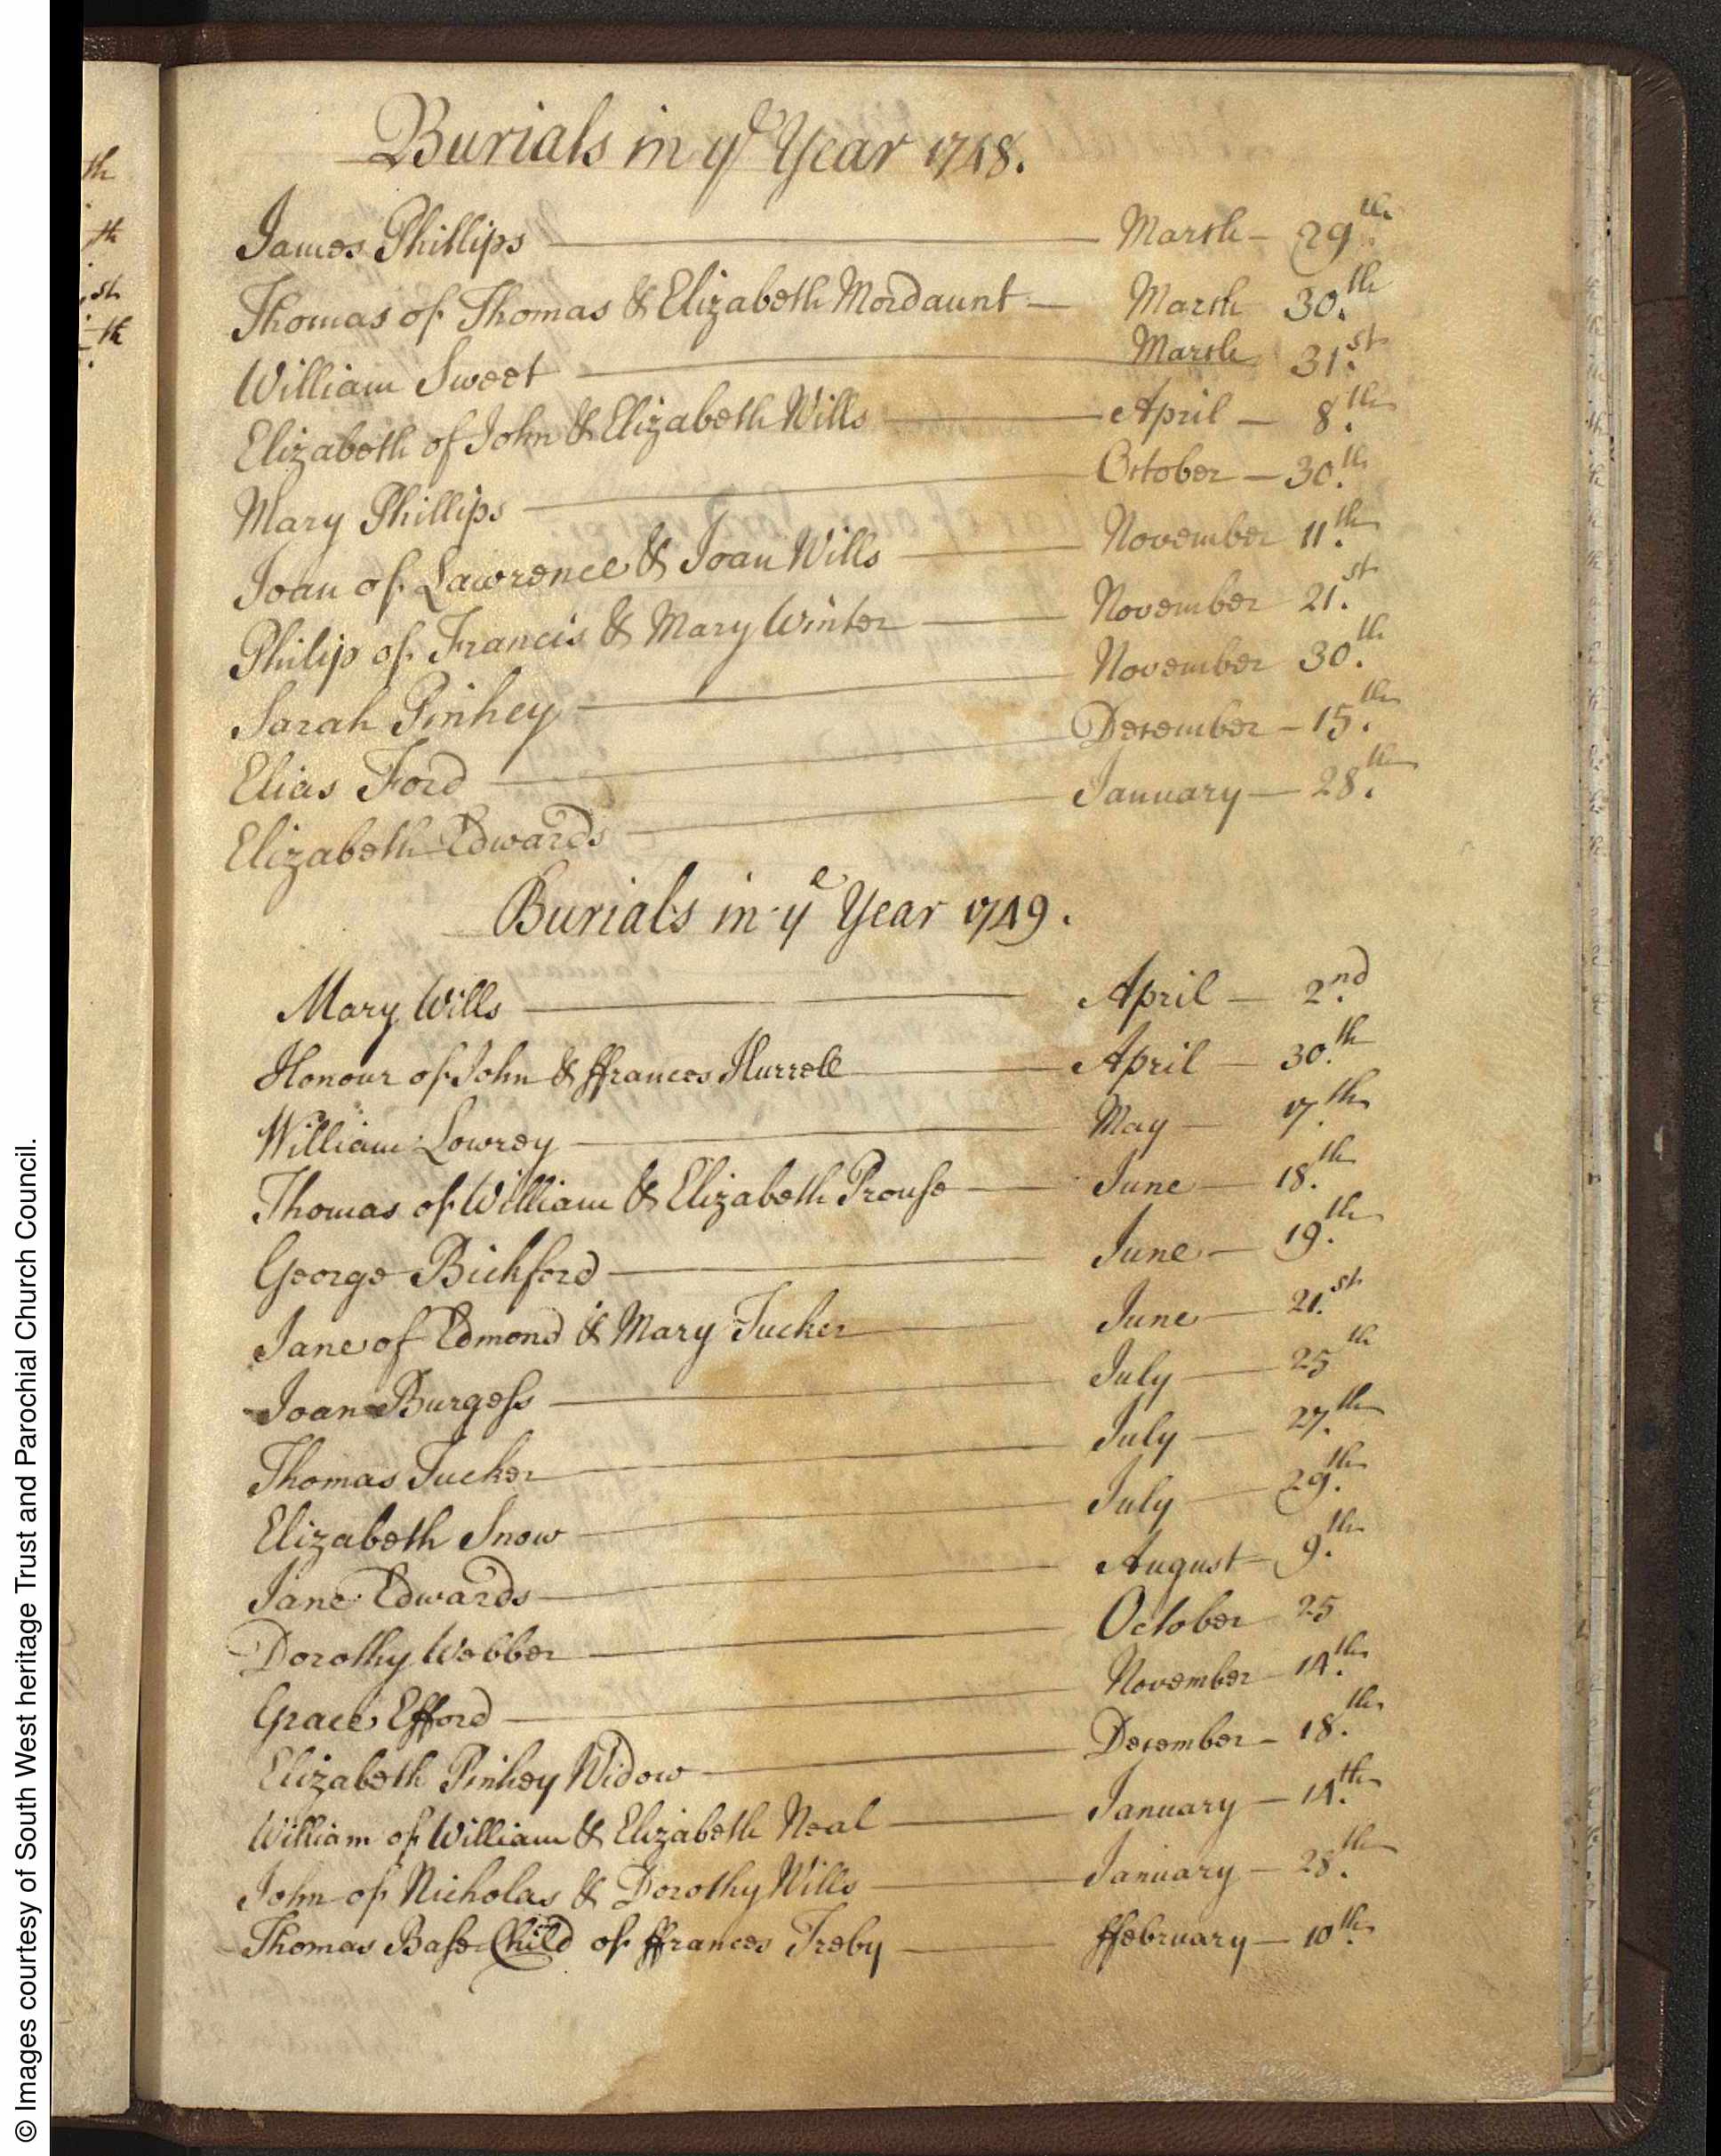 Burials in yᵉ Year 1748.
James Phillips — March – 29.th
Thomas of Thomas & Elizabeth Mordaunt — March 30.th
William Sweet — March 31.st
Elizabeth of John & Elizabeth Wills — April — 8.th
Mary Phillips — October — 30.th
Joan of Lawrence & Joan Wills — November 11.th
Philip of Francis & Mary Winter — November 21.st
Sarah Pinhey — November 30.th
Elias Ford — December – 15.th
Elizabeth Edwards — January — 28.th
Burials in yᵉ Year 1749.
Mary Wills — April — 2.nd
Honour of John & ffrances Hurrell — April — 30.th
William Lowrey — May — 17.th
Thomas of William & Elizabeth Prouſe — June — 18.th
George Bickford — June — 19.th
Jane of Edmond & Mary Tucker — June — 21.st
Joan Burgeſs — July — 25th
Thomas Tucker — July — 27.th
Elizabeth Snow — July — 29.th
Jane Edwards — August – 9.th
Dorothy Webber — October 25
Grace Efford — November – 14.th
Elizabeth Pinhey Widow — December – 18.th
William of William & Elizabeth Neal — January — 14.th
John of Nicholas & Dorothy Wills — January — 28.th
Thomas Baſe Child of ffrances Treby — ffebruary — 10.th
© Images courtesy of South West heritage Trust and Parochial Church Council.